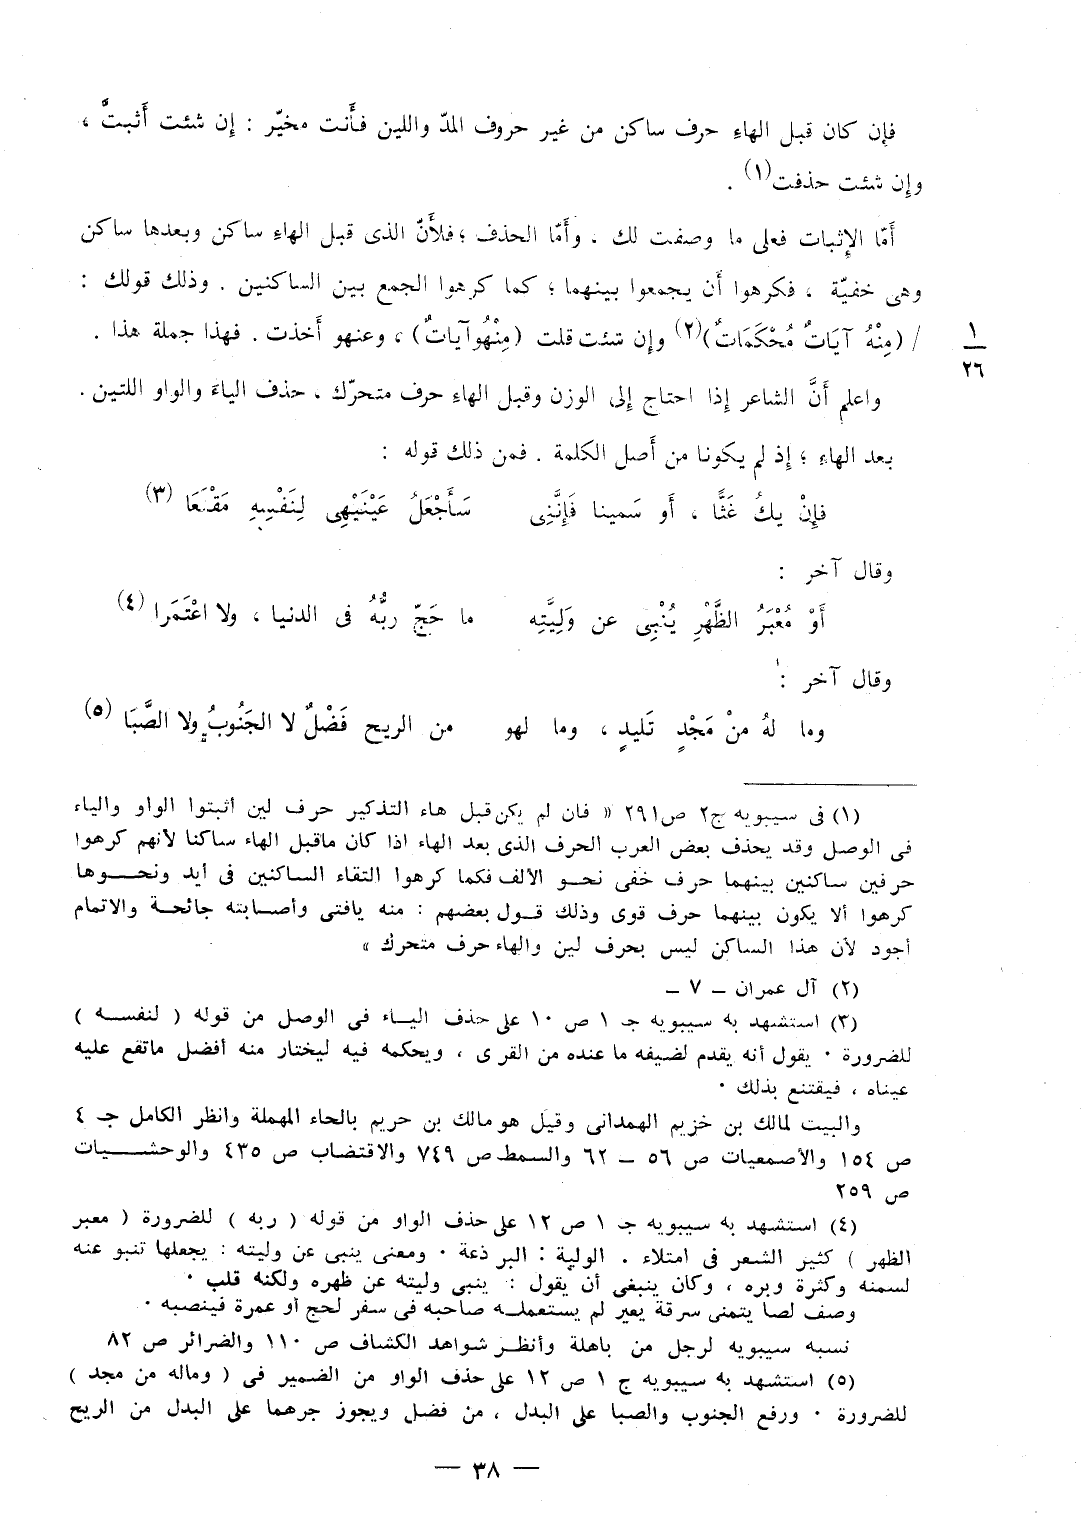 فإن كان قبل الهاءِ حرف ساكن من غير حروف المدّ واللين فأَنت مخيّر : إن شئت أَثبتَّ ،
وإن شئت حذفت(١) .
أَمّا الإِثبات فعلى ما وصفت لك . وأَمّا الحذف ؛ فلأَنّ الذى قبل الهاءِ ساكن وبعدها ساكن
وهى خفيّة ، فكرهوا أَن يجمعوا بينهما ؛ كما كرهوا الجمع بين الساكنين . وذلك قولك :
/ (مِنْهُ آيَاتٌ مُحْكَمَاتٌ)(٢) وإن شئت قلت (مِنْهُوآيَاتٌ) ، وعنهو أَخذت . فهذا جملة هذا .
١
٢٦
واعلم أَنَّ الشاعر إذا احتاج إلى الوزن وقبل الهاءِ حرف متحرّك ، حذف الياءَ والواو اللتين .
بعد الهاءِ ؛ إذ لم يكونا من أَصل الكلمة . فمن ذلك قوله :
فإنْ يكُ غَثًّا ، أَو سَمينا فَإنَّنِى سَأَجْعَلُ عَيْنَيْهِى لِنَفْسِهِ مَقْنَعَا (٣)
وقال آخر :
أَوْ مُعْبَرُ الظَّهْرِ يُنْبِى عن وَلِيَّتِه ما حَجّ ربُّهُ فى الدنيا ، ولا اعْتَمَرا (٤)
وقال آخر :
وما لهُ منْ مَجْدٍ تَليدٍ ، وما لهو من الريح فَضْلٌ لا الجَنُوبُ ولا الصَّبَا (٥)
(١) فى سيبويه ج٢ ص٢٩١ « فان لم يكن قبل هاء التذكير حرف لين أثبتوا الواو والياء
فى الوصل وقد يحذف بعض العرب الحرف الذى بعد الهاء اذا كان ماقبل الهاء ساكنا لأنهم كرهوا
حرفين ساكنين بينهما حرف خفى نحو الألف فكما كرهوا التقاء الساكنين فى أيد ونحوها
كرهوا ألا يكون بينهما حرف قوى وذلك قول بعضهم : منه يافتى وأصابته جائحة والاتمام
أجود لأن هذا الساكن ليس بحرف لين والهاء حرف متحرك »
(٢) آل عمران – ٧ –
(٣) استشهد به سيبويه جـ ١ ص ١٠ على حذف الياء فى الوصل من قوله ( لنفسه )
للضرورة · يقول أنه يقدم لضيفه ما عنده من القرى ، ويحكمه فيه ليختار منه أفضل ماتقع عليه
عيناه ، فيقتنع بذلك ·
والبيت لمالك بن خزيم الهمدانى وقيل هو مالك بن حريم بالحاء المهملة وانظر الكامل جـ ٤
ص ١٥٤ والأصمعيات ص ٥٦ – ٦٢ والسمط ص ٧٤٩ والاقتضاب ص ٤٣٥ والوحشيات
ص ٢٥٩
(٤) استشهد به سيبويه جـ ١ ص ١٢ على حذف الواو من قوله ( ربه ) للضرورة ( معبر
الظهر ) كثير الشعر فى امتلاء . الولية : البرذعة · ومعنى ينبى عن وليته : يجعلها تنبو عنه
لسمنه وكثرة وبره ، وكان ينبغى أن يقول : ينبى وليته عن ظهره ولكنه قلب ·
وصف لصا يتمنى سرقة بعير لم يستعمله صاحبه فى سفر لحج أو عمرة فينصبه ·
نسبه سيبويه لرجل من باهلة وأنظر شواهد الكشاف ص ١١٠ والضرائر ص ٨٢
(٥) استشهد به سيبويه ج ١ ص ١٢ على حذف الواو من الضمير فى ( وماله من مجد )
للضرورة · ورفع الجنوب والصبا على البدل ، من فضل ويجوز جرهما على البدل من الريح
— ٣٨ —